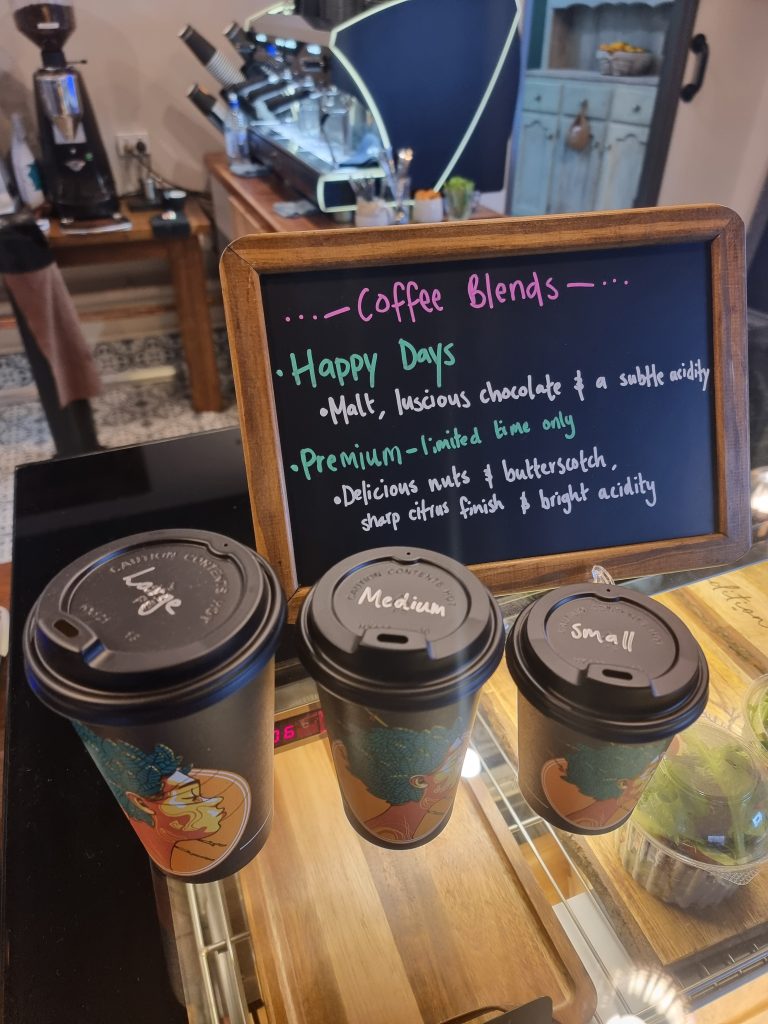 ...—Coffee Blends—...
• Happy Days
• Malt, luscious chocolate & a subtle acidity
• Premium-limited time only
• Delicious nuts & butterscotch,
sharp citrus finish & bright acidity
CAUTION CONTENTS HOT
Large
CAUTION CONTENTS HOT
Medium
small